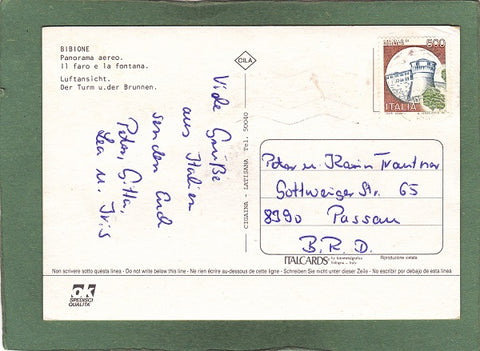 BIBIONE
Panorama aereo.
Il faro e la fontana.
Luftansicht.
Der Turm u.der Brunnen.
CILA
500
ITALIA
Viele Grüße
aus Italien
senden Euch
Peter, Gitta,
Lea u. Iris
CIGAINA - LATISANA Tel. 50040
Peter u. Karin Trautner
Gottweiger Str. 65
8390 Passau
B.R.D.
ITALCARDS
Riproduzione vietata
Non scrivere sotto questa linea - Do not write below this line - Ne rien écrire au-dessous de cette ligne - Schreiben Sie nicht unter dieser Zeile - No escribir por debajo de esta linea
ok
SPEDISCI
QUALITA'